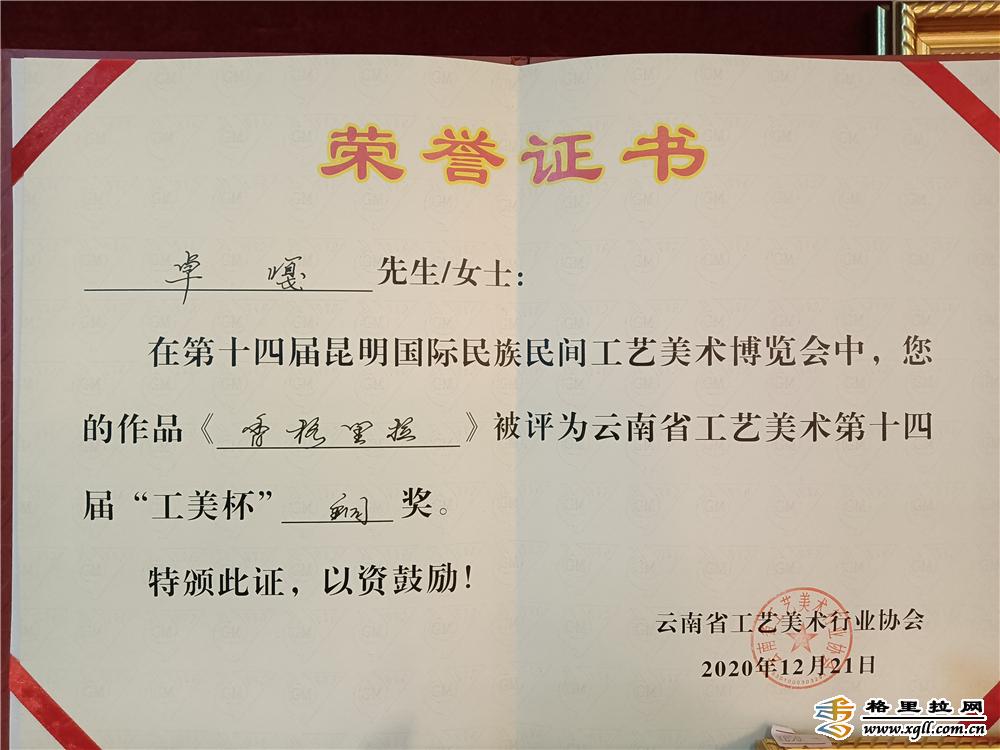 荣誉证书
卓嘎 先生/女士：
在第十四届昆明国际民族民间工艺美术博览会中，您
的作品《香格里拉》被评为云南省工艺美术第十四
届“工美杯” 铜 奖。
特颁此证，以资鼓励！
云南省工艺美术行业协会
2020年12月21日
格里拉网
www.xgll.com.cn